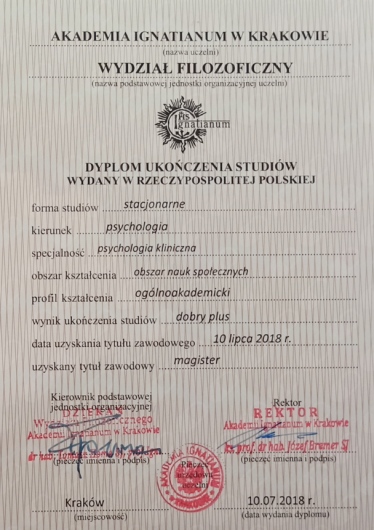 AKADEMIA IGNATIANUM W KRAKOWIE
(nazwa uczelni)
WYDZIAŁ FILOZOFICZNY
(nazwa podstawowej jednostki organizacyjnej uczelni)
Ignatianum
DYPLOM UKOŃCZENIA STUDIÓW
WYDANY W RZECZYPOSPOLITEJ POLSKIEJ
forma studiów stacjonarne
kierunek psychologia
specjalność psychologia kliniczna
obszar kształcenia obszar nauk społecznych
profil kształcenia ogólnoakademicki
wynik ukończenia studiów dobry plus
data uzyskania tytułu zawodowego 10 lipca 2018 r.
uzyskany tytuł zawodowy magister
Kierownik podstawowej
jednostki organizacyjnej
DZIEKAN
Akademii Ignatianum w Krakowie
dr hab.
(pieczęć imienna i podpis)
Rektor
REKTOR
Akademii Ignatianum w Krakowie
ks. prof. dr hab. Józef Bremer SJ
(pieczęć imienna i podpis)
AKADEMIA IGNATIANUM
Pieczęć
urzędowa
uczelni
Kraków
(miejscowość)
10.07.2018 r.
(data wydania dyplomu)